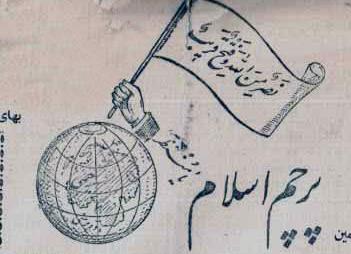 نصر من الله و فتح قریب
بهای
پرچم اسلام
مین